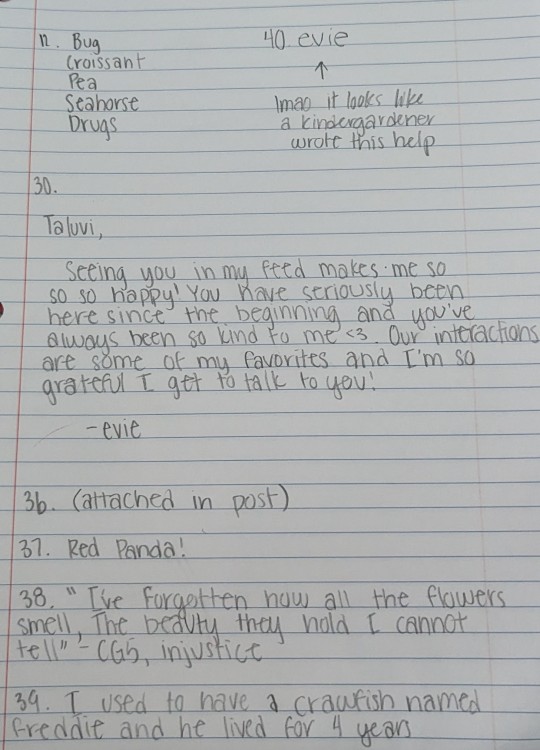 12. Bug
Croissant
Pea
Seahorse
Drugs
40. evie
↑
lmao it looks like
a kindergardener
wrote this help
30.
Taluvi,
Seeing you in my feed makes me so
so so happy! You have seriously been
here since the beginning and you've
always been so kind to me <3. Our interactions
are some of my favorites and I'm so
grateful I get to talk to you!
-evie
36. (attached in post)
37. Red Panda!
38. "I've forgotten how all the flowers
smell, The beauty they hold I cannot
tell" - CG5, injustice
39. I used to have a crawfish named
freddie and he lived for 4 years